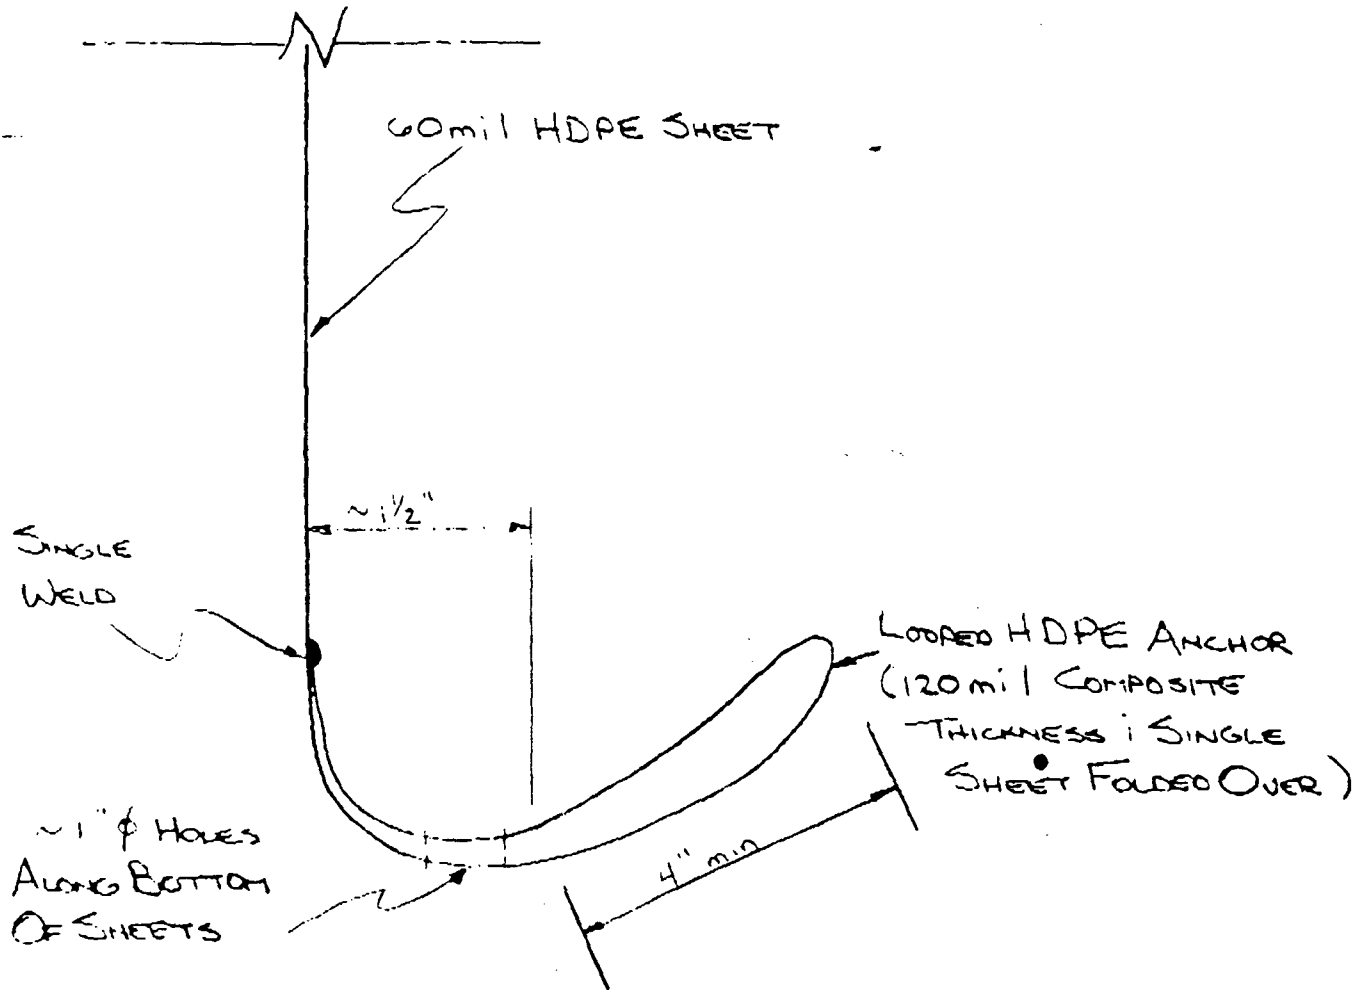 60mil HDPE SHEET
~1½"
SINGLE
WELD
LOOPED HDPE ANCHOR
(120mil COMPOSITE
THICKNESS ; SINGLE
SHEET FOLDED OVER)
~1"ϕ HOLES
ALONG BOTTOM
OF SHEETS
4" min